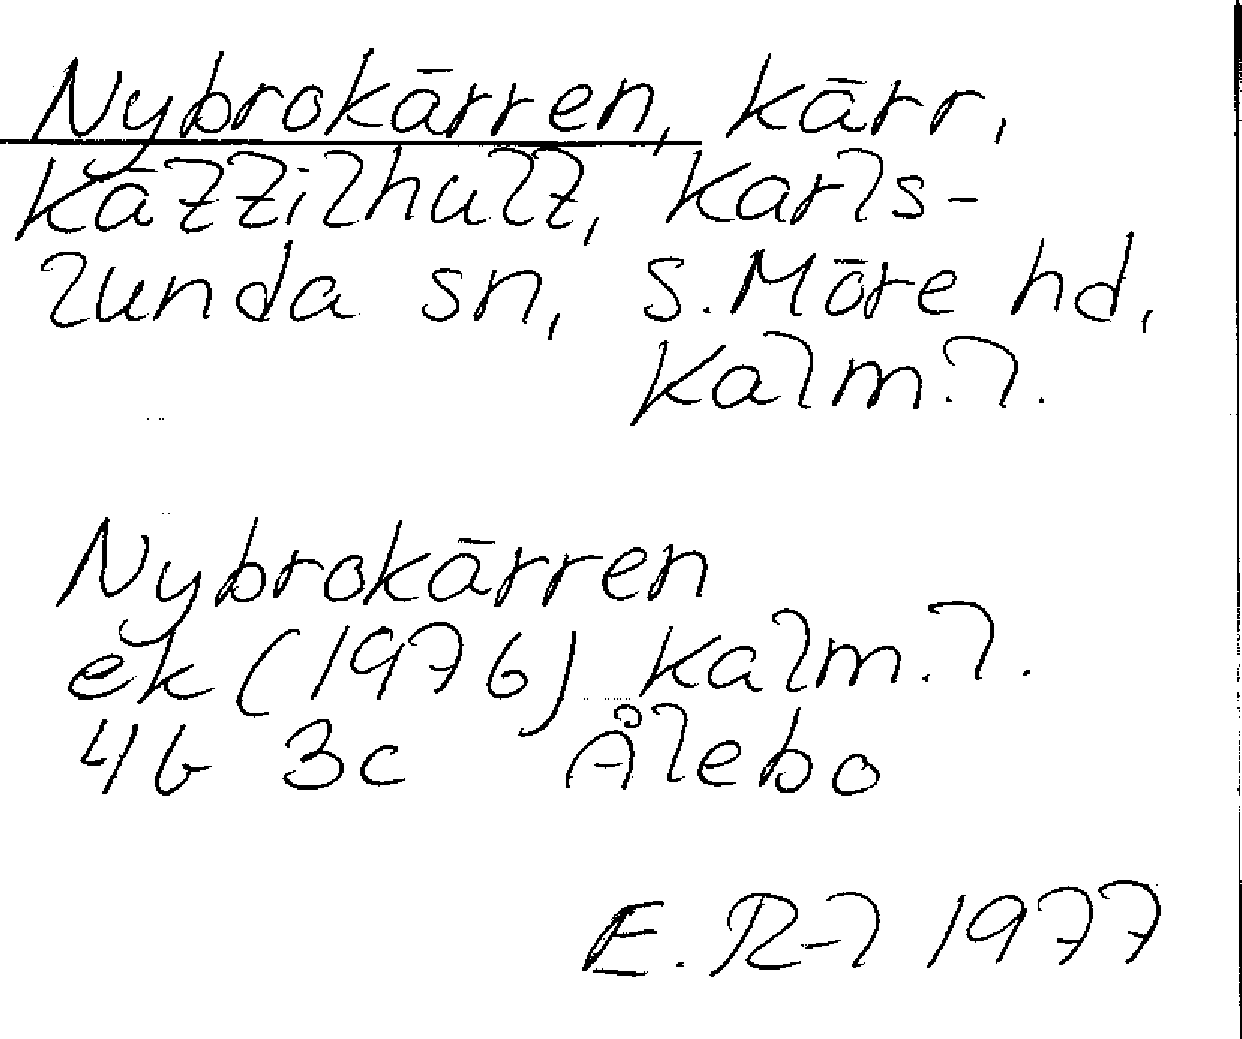 Nybrokärren, kärr,
Kättilhult, Karls-
lunda sn, S. Möre hd,
Kalm. l.
Nybrokärren
ek (1976) Kalm. l.
4G 3c Ålebo
E. R-l 1977